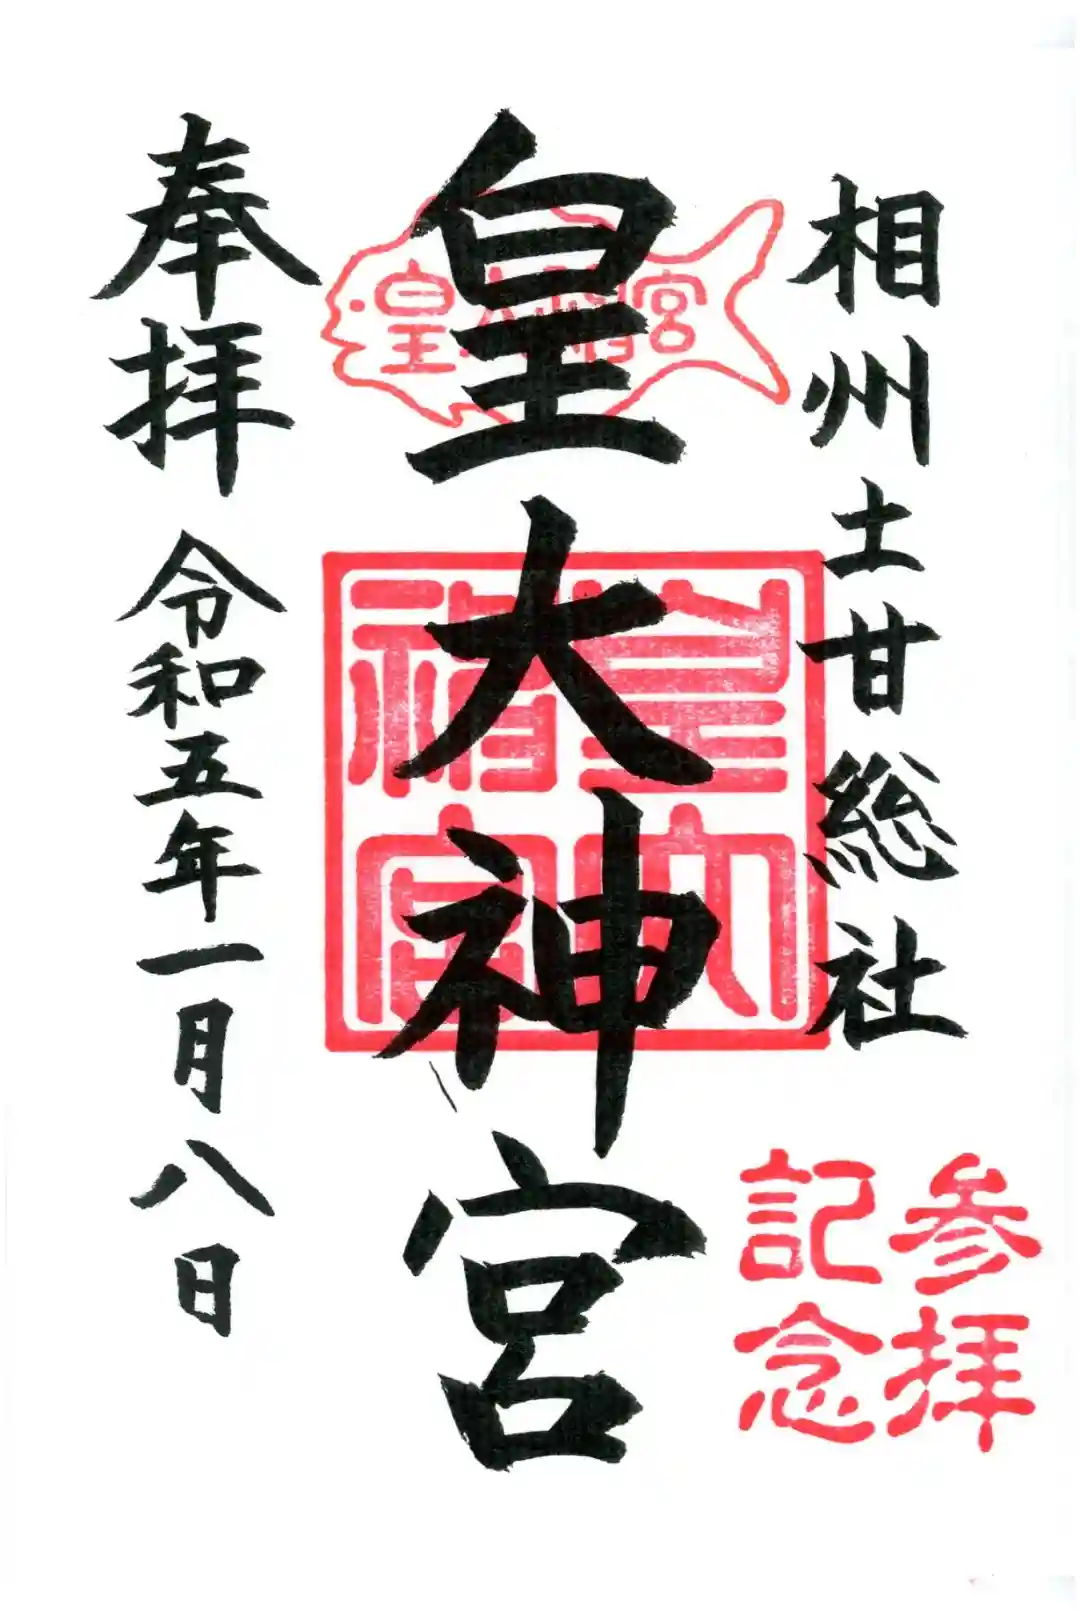 相州土甘総社
参拝
記念
皇大神宮
皇大神宮
皇大
神宮
奉拝 令和五年一月八日